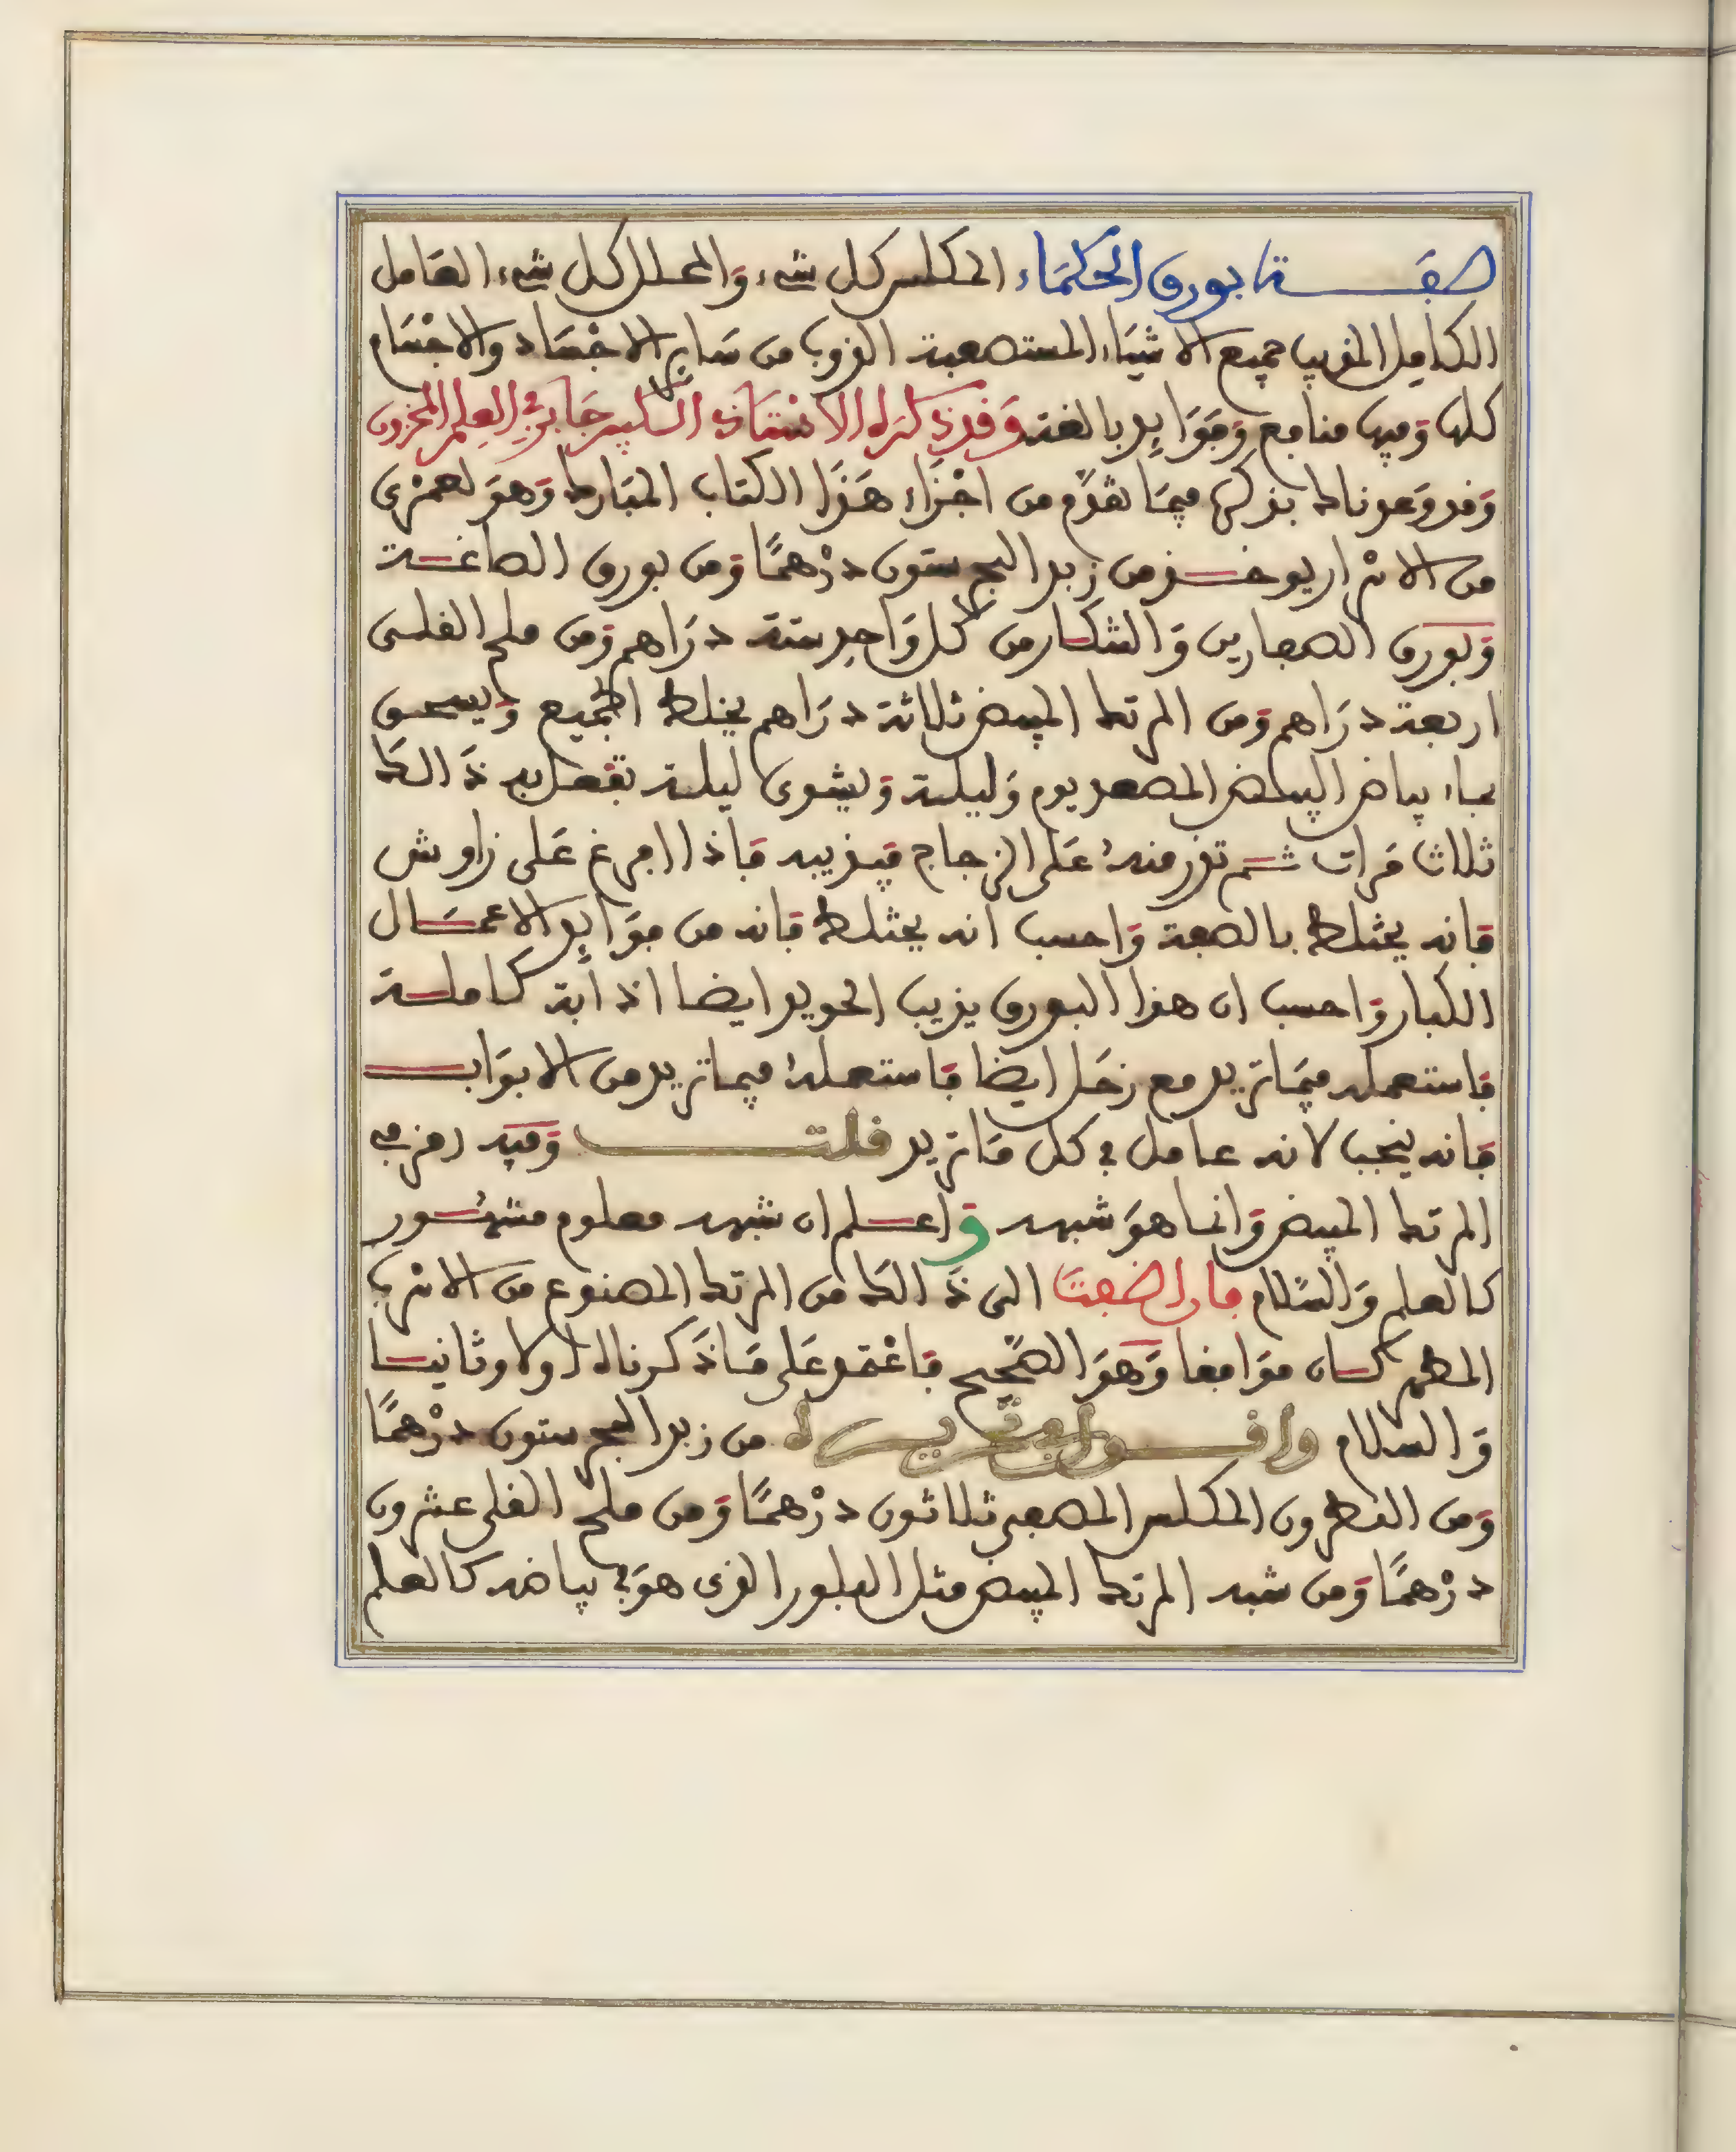 صفة بورق الحكماء المكلس كل شيء والمحلل كل شيء العامل
الكامل المذيب جميع الاشياء المستصعبة الذوب من ساير الاجساد والاجسام
كلها وفيها منافع وفوايد بالغة وقد ذكره الاستاذ الكبير جابر في العلم المخزون
وقد وعدناك بذكرها فيما تقدم من اجزاء هذا الكتاب المبارك وهو لعمري
من الاسرار يوخذ من زبد البحر ستون درهما ومن بورق الصاغة
وبورق الصفارين والتنكار من كل واحد ستة دراهم ومن ملح القلى
اربعة دراهم ومن المرتك المبيض ثلاثة دراهم يخلط الجميع ويسحق
بماء بياض البيض المصعد يوم وليلة ويشوى ليلة تفعل به ذالك
ثلاث مرات ثم تذر منه على الزجاج فيذيبه فاذا افرغ على زاوش
فانه يختلط بالصفة واحسب انه يختلط فانه من فوايد الاعمال
الكبار واحسب ان هذا البورق يذيب الحديد ايضا اذابة كاملة
فاستعمله فيما تريد مع زحل ايضا فاستعمله فيما تريد من الابواب
فانه ينجب لانه عامل في كل ما تريد قلت وفيه رمز في
المرتك المبيض وانما هو شبهه واعلم ان شبهه معلوم مشهور
كالعلم والسلام فان اضفت الى ذالك من المرتك المصنوع من الاسرب
المطهر كان موافقا وهو الصحيح فاعتمد على ما ذكرناه اولا وثانيا
والسلام واقول من زبد البحر ستون درهما
ومن النطرون المكلس المصفى ثلاثون درهما ومن ملح القلى عشرون
درهما ومن شبه المرتك المبيض مثل البلور الذى هو في بياضه كالعلم